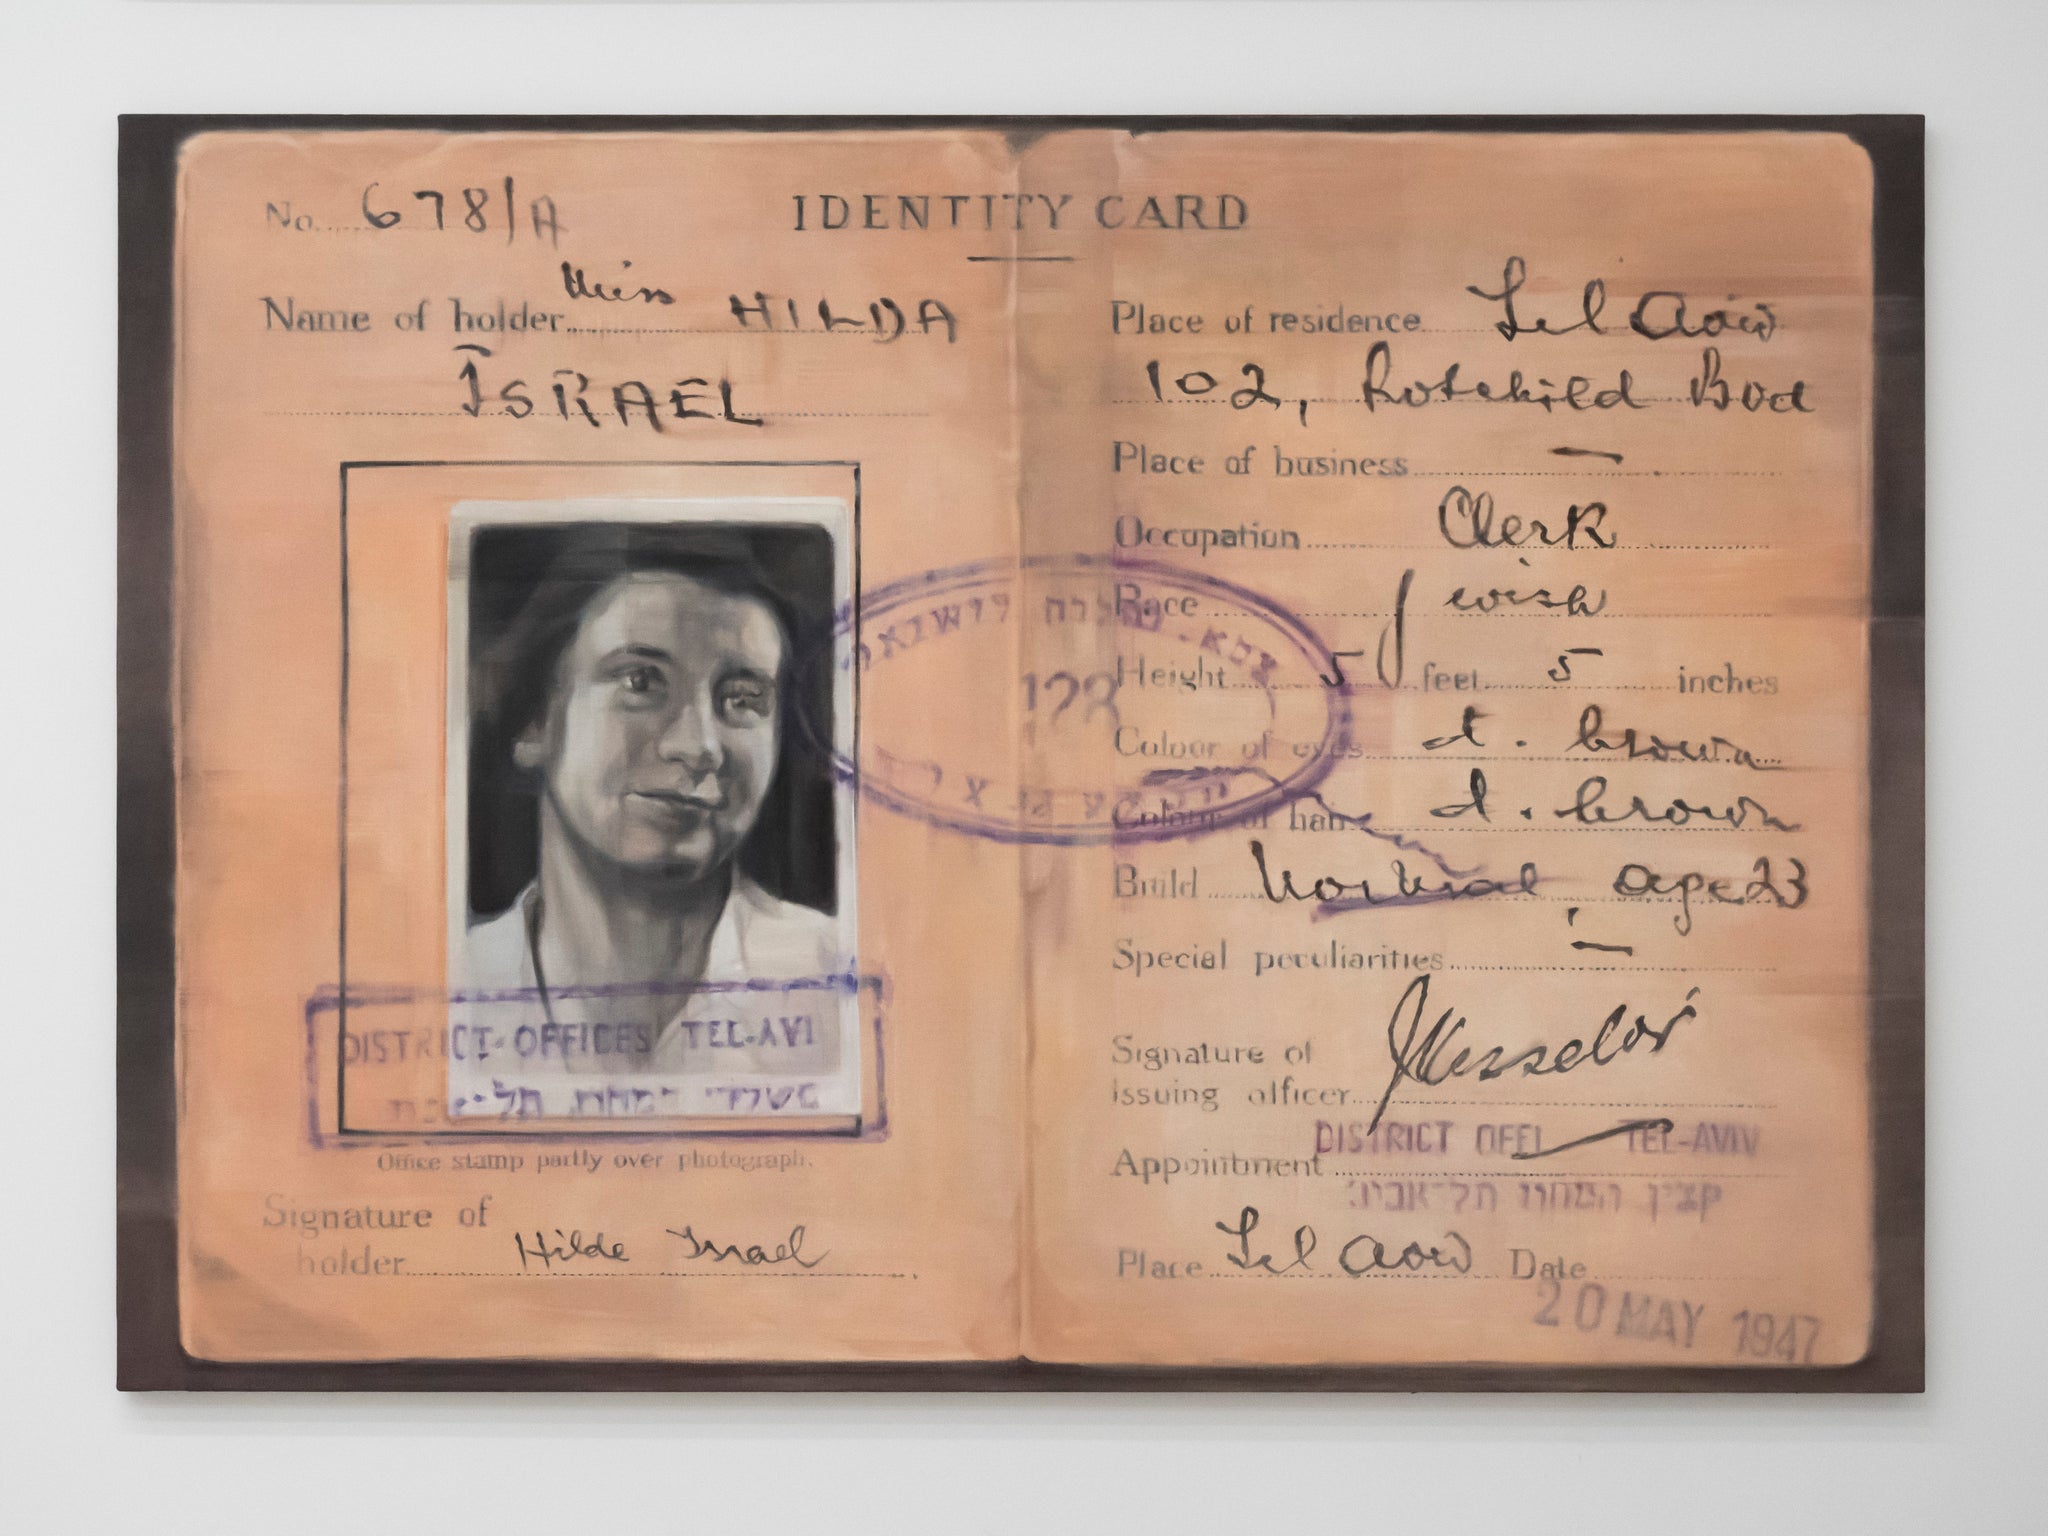 No. 678/A
IDENTITY CARD
Name of holder Miss HILDA
ISRAEL
DISTRICT OFFICES TEL-AVI
Office stamp partly over photograph.
Signature of
holder Hilde Israel
Place of residence Tel Aviv
102, Rotschild Bvd
Place of business —
Occupation Clerk
Race Jewish
128
Height 5 feet 5 inches
Colour of eyes d. brown
Colour of hair d. brown
Build Normal, age 23
Special peculiarities —
Signature of
issuing officer
DISTRICT OFFI TEL-AVIV
Appointment
קצין המחוז תל-אביב
Place Tel Aviv Date
20 MAY 1947